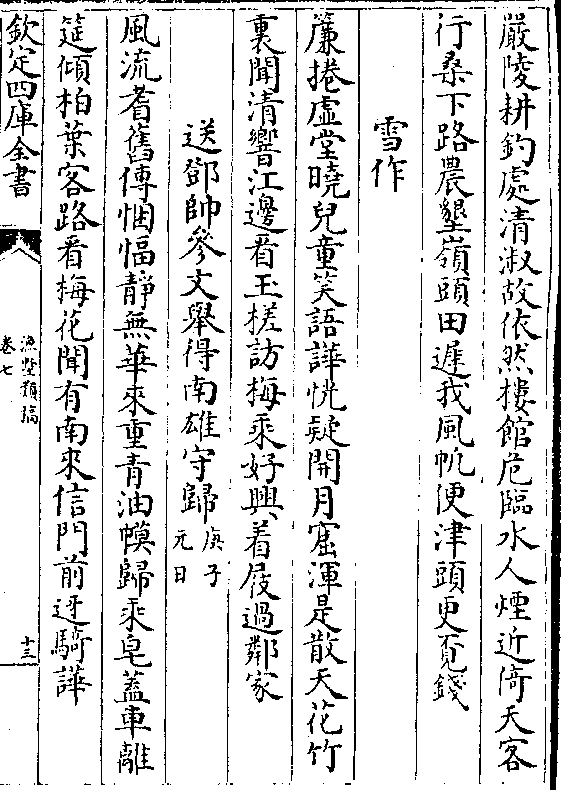 嚴陵耕釣處清淑故依然樓館危臨水人煙近倚天客
行桑下路農墾嶺頭田遲我風帆便津頭更覔錢
雪作
簾捲虛堂曉兒童笑語譁恍疑開月窟渾是散天花竹
裏聞清響江邊看玉槎訪梅乘好興着屐過鄰家
送鄧帥參文舉得南雄守歸庚子元日
風流耆舊傳悃愊靜無華來重青油幙歸乘皂蓋車離
筵傾柏葉客路看梅花聞有南來信門前迓騎譁
欽定四庫全書
漁墅類稿
卷七
十三